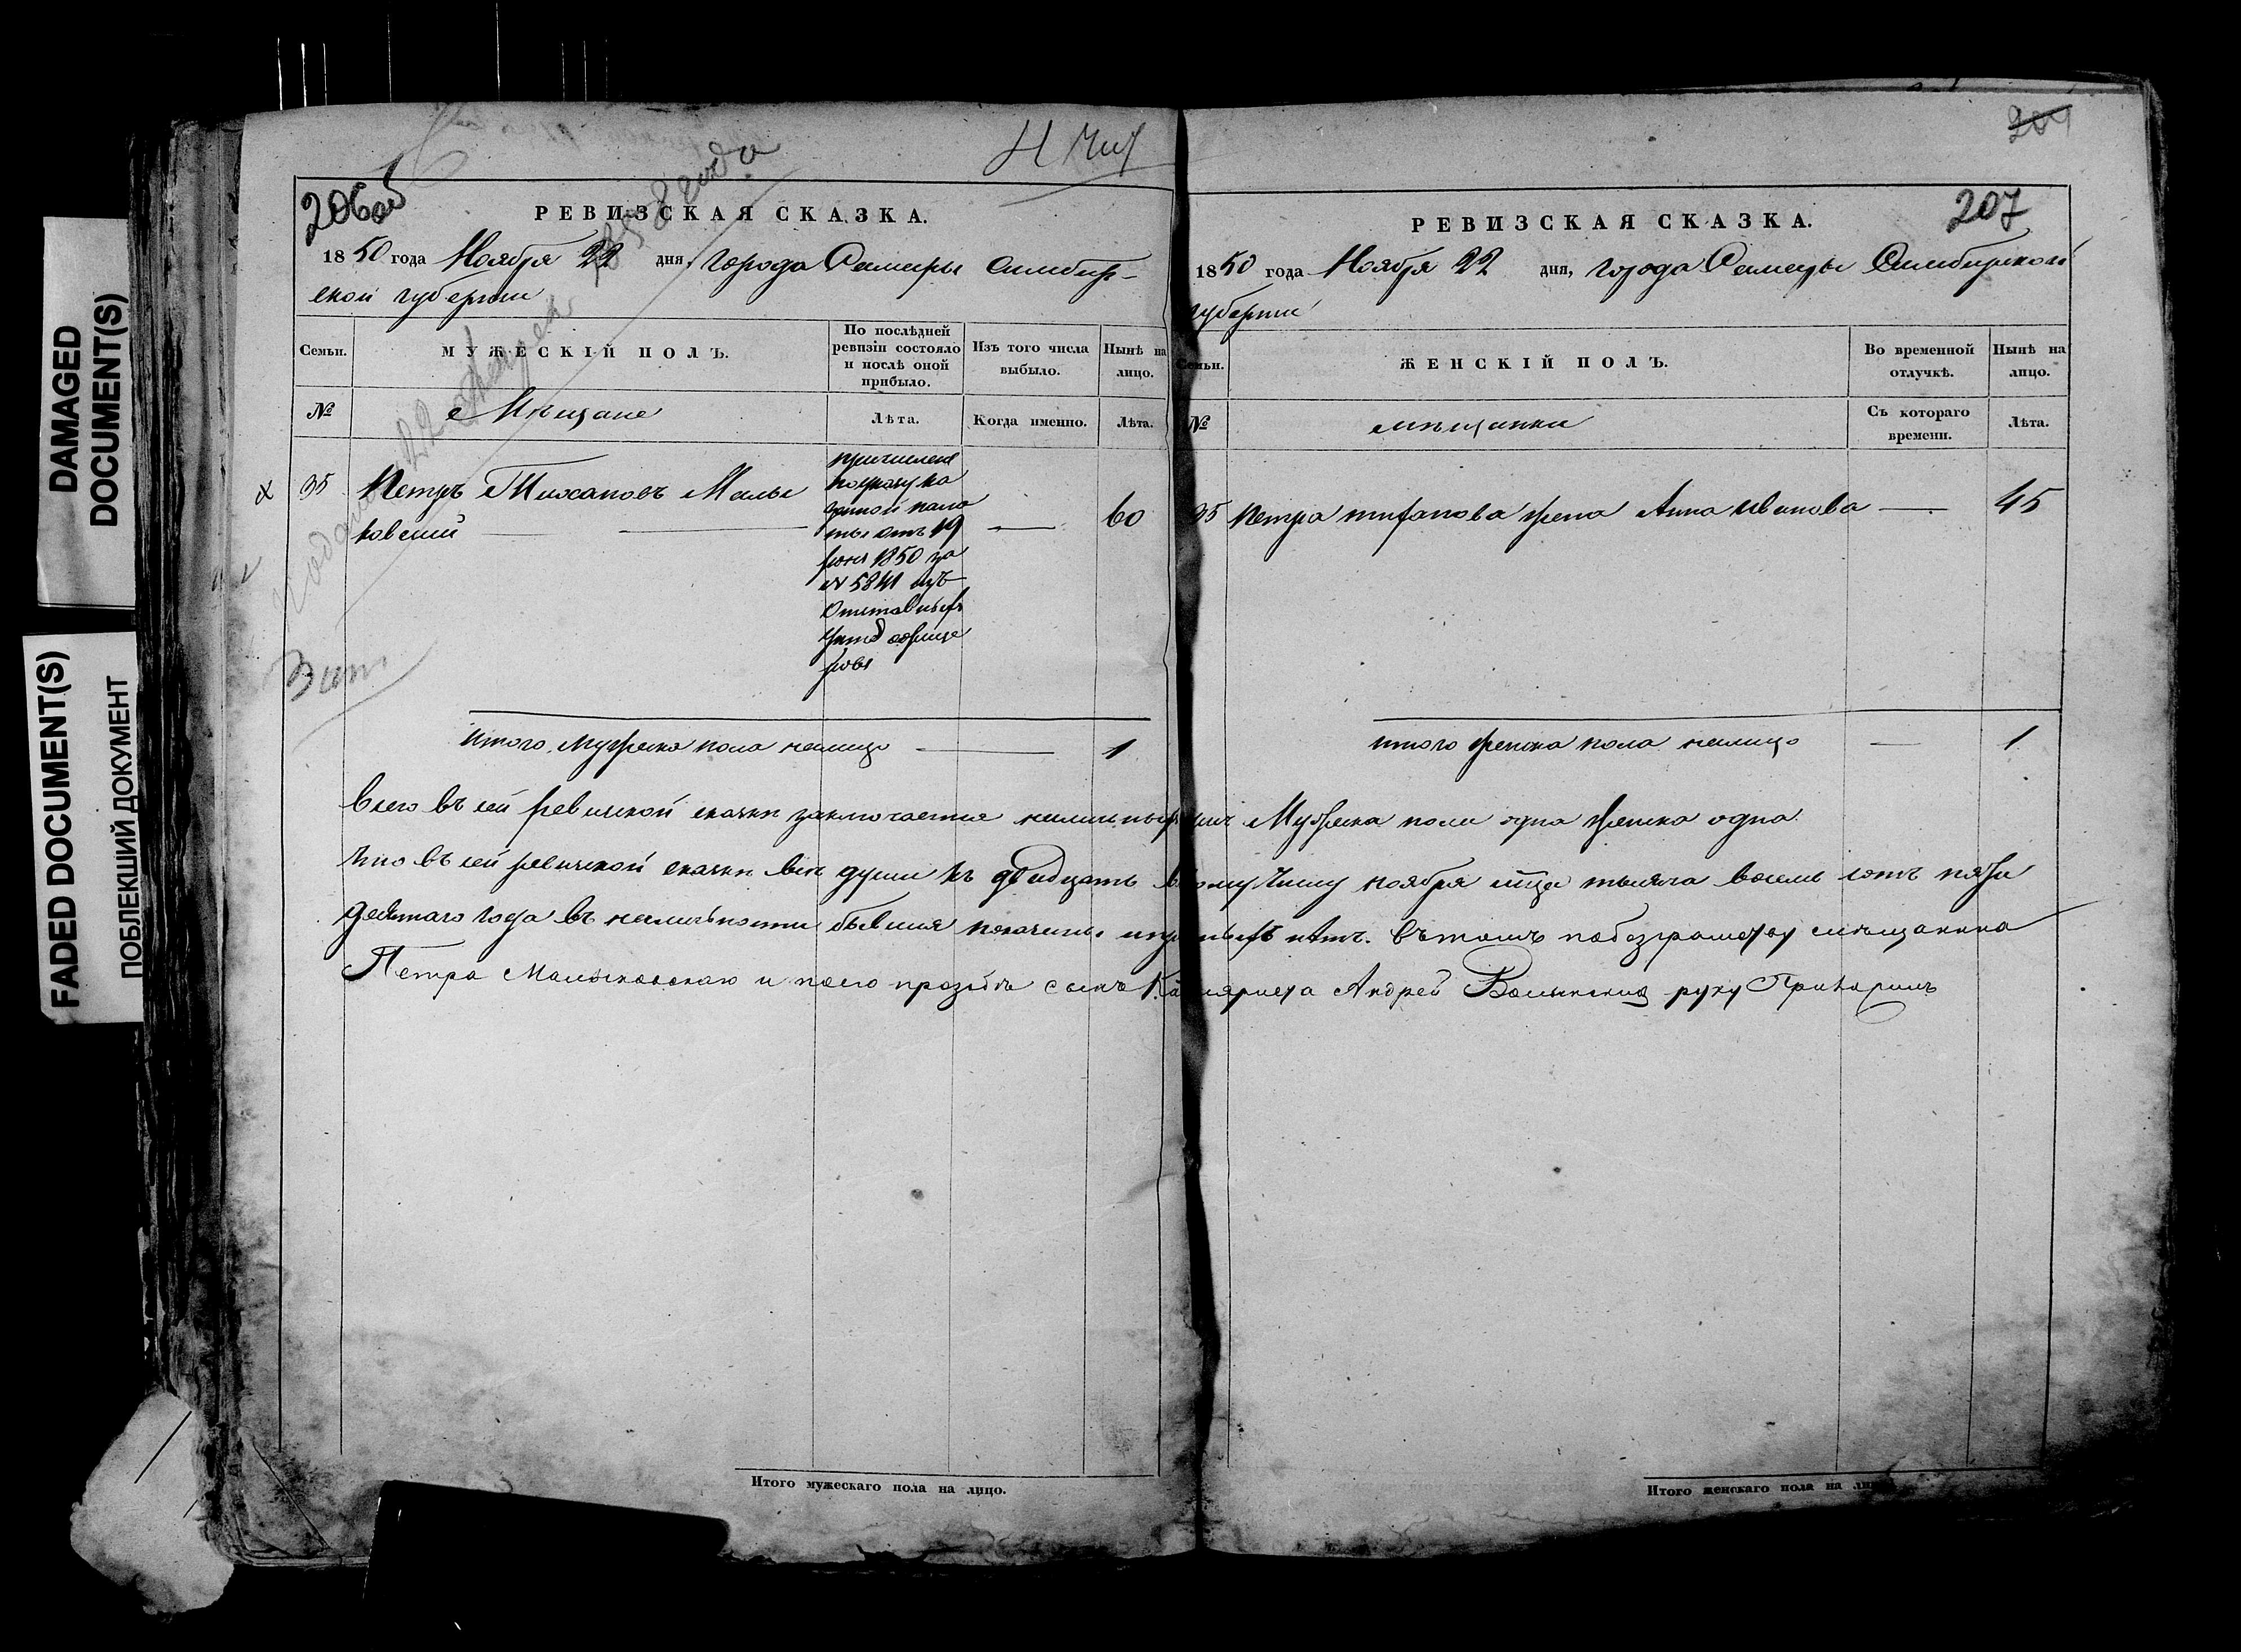 DAMAGED
DOCUMENT(S)
FADED DOCUMENT(S)
ПОБЛЕКШИЙ ДОКУМЕНТ
206об
РЕВИЗСКАЯ СКАЗКА.
1850 года Ноября 22 дня, города Самары Симбир-
ской губернии
Семьи.
МУЖЕСКІЙ ПОЛЪ.
По послѣдней
ревизіи состояло
и послѣ оной
прибыло.
Изъ того числа
выбыло.
Нынѣ на
лицо.
№
Мѣщане
Лѣта.
Когда именно.
Лѣта.
35
Петръ Тихановъ Малы
ковский
причислен
поуказу ка
зенной пала
ты отъ 19
июня 1850 за
№ 5841 изъ
Отставныхъ
унтеръ офице
ровъ
—
60
Итого мужеска пола налицо — 1
Итого мужескаго пола на лицо.
204
207
РЕВИЗСКАЯ СКАЗКА.
1850 года Ноября 22 дня, города Самары Симбирской
губернии
Семьи.
ЖЕНСКІЙ ПОЛЪ.
Во временной
отлучкѣ.
Нынѣ на
лицо.
№
мѣщанки
Съ котораго
времени.
Лѣта.
35 Петра тиханова жена Анна Иванова — 45
итого женска пола налицо — 1
Всего въ сей ревиской скаски заключается наличныхъ Мужеска пола одна женска одна
Что въ сей ревиской скаски все души къ двадцать второму Числу ноября тысяча восемь сотъ пяти
десятаго года въ наличности бывшия показаны въ томъ
Петра Малыковскаго и поего прозбѣ сынъ Андрей руку Приложилъ
Итого женскаго пола на